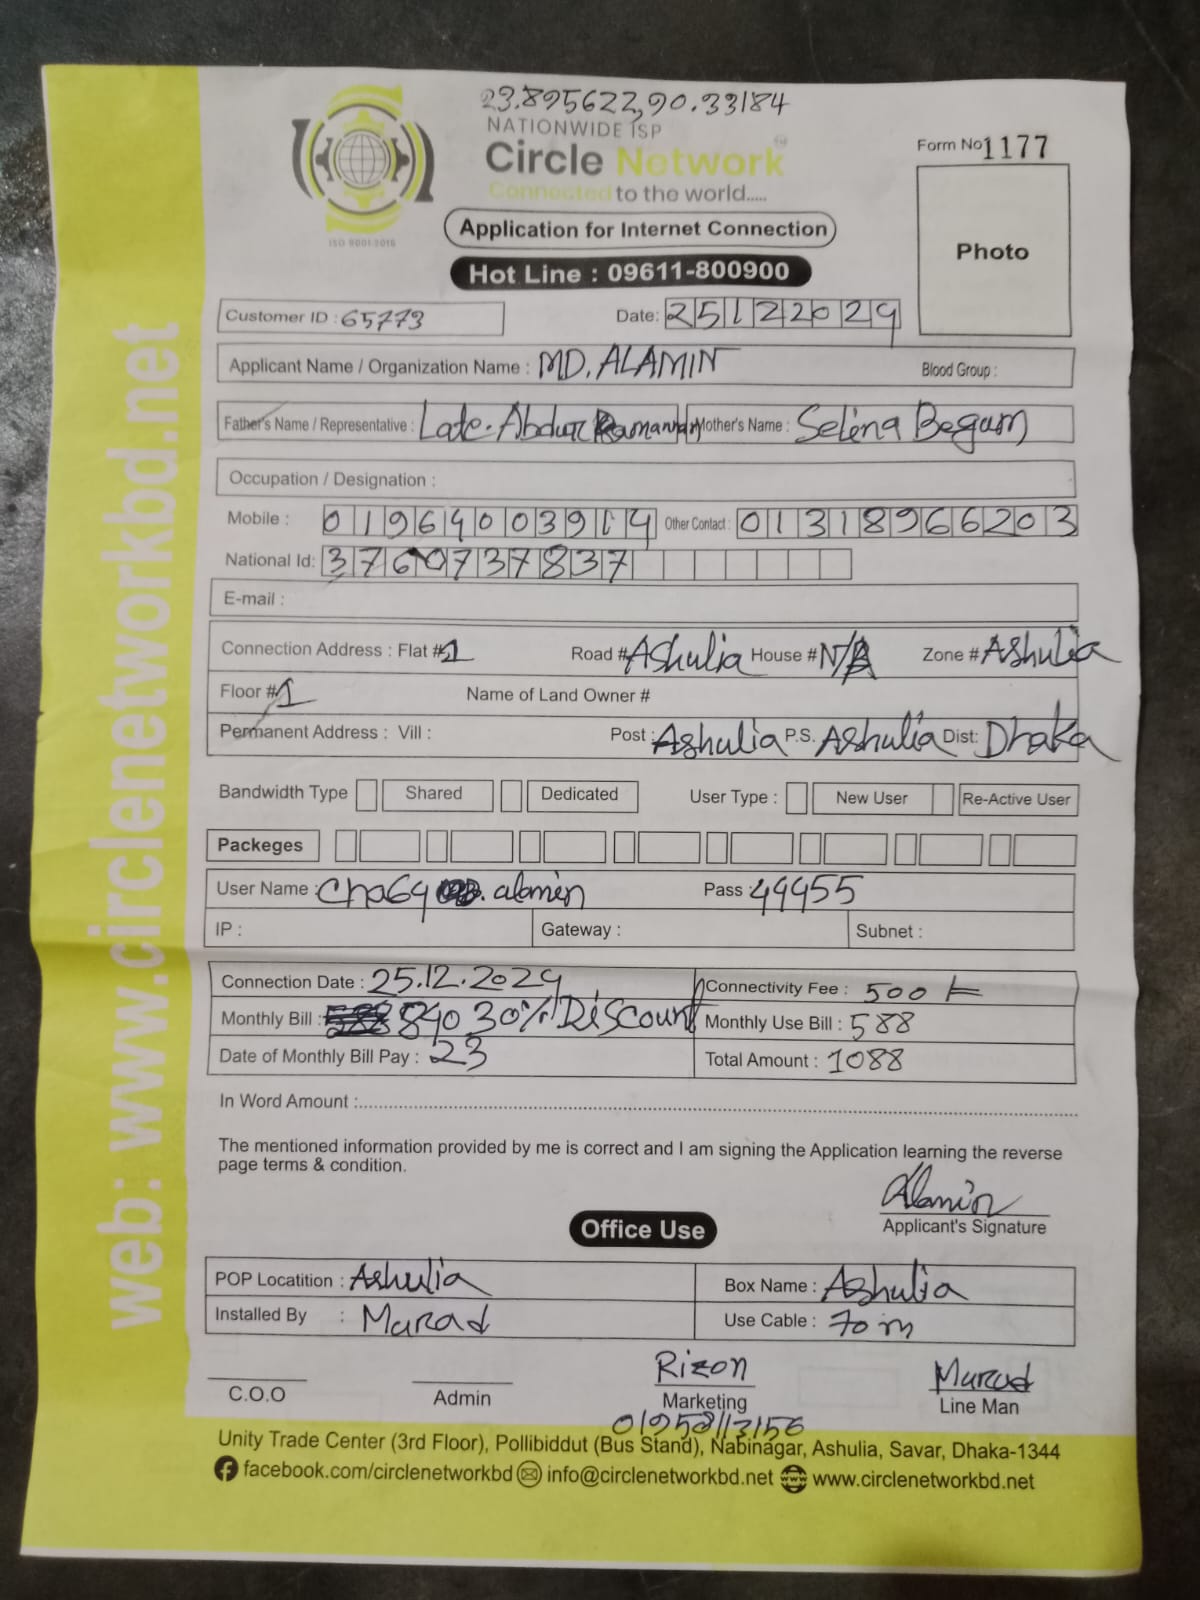 23.895622,90.33184
NATIONWIDE ISP
Circle Network
Connected to the world.....
ISO 9001:2015
Form No 1177
Photo
Application for Internet Connection
Hot Line : 09611-800900
Customer ID : 65773
Date: 25122024
Applicant Name / Organization Name : MD. ALAMIN
Blood Group :
Father's Name / Representative : Late. Abdur Mother's Name : Selina Begum
Occupation / Designation :
Mobile : 01964003914 Other Contact : 01318966203
National Id: 3760737837
E-mail :
Connection Address : Flat # 1 Road # Ashulia House # N/A Zone # Ashulia
Floor # 1 Name of Land Owner #
Permanent Address : Vill : Post : Ashulia P.S. Ashulia Dist: Dhaka
Bandwidth Type Shared Dedicated User Type : New User Re-Active User
Packeges
User Name : . alamin Pass : 49955
IP : Gateway : Subnet :
Connection Date : 25.12.2024 Connectivity Fee : 500 /=
Monthly Bill : 840 30% Discount Monthly Use Bill : 588
Date of Monthly Bill Pay : 23 Total Amount : 1088
In Word Amount :
The mentioned information provided by me is correct and I am signing the Application learning the reverse
page terms & condition.
Alamin
Applicant's Signature
Office Use
POP Locatition : Ashulia Box Name : Ashulia
Installed By : Murad Use Cable : 70 m
Rizon Murad
C.O.O Admin Marketing Line Man
01958113156
Unity Trade Center (3rd Floor), Pollibiddut (Bus Stand), Nabinagar, Ashulia, Savar, Dhaka-1344
facebook.com/circlenetworkbd info@circlenetworkbd.net www.circlenetworkbd.net
web: www.circlenetworkbd.net